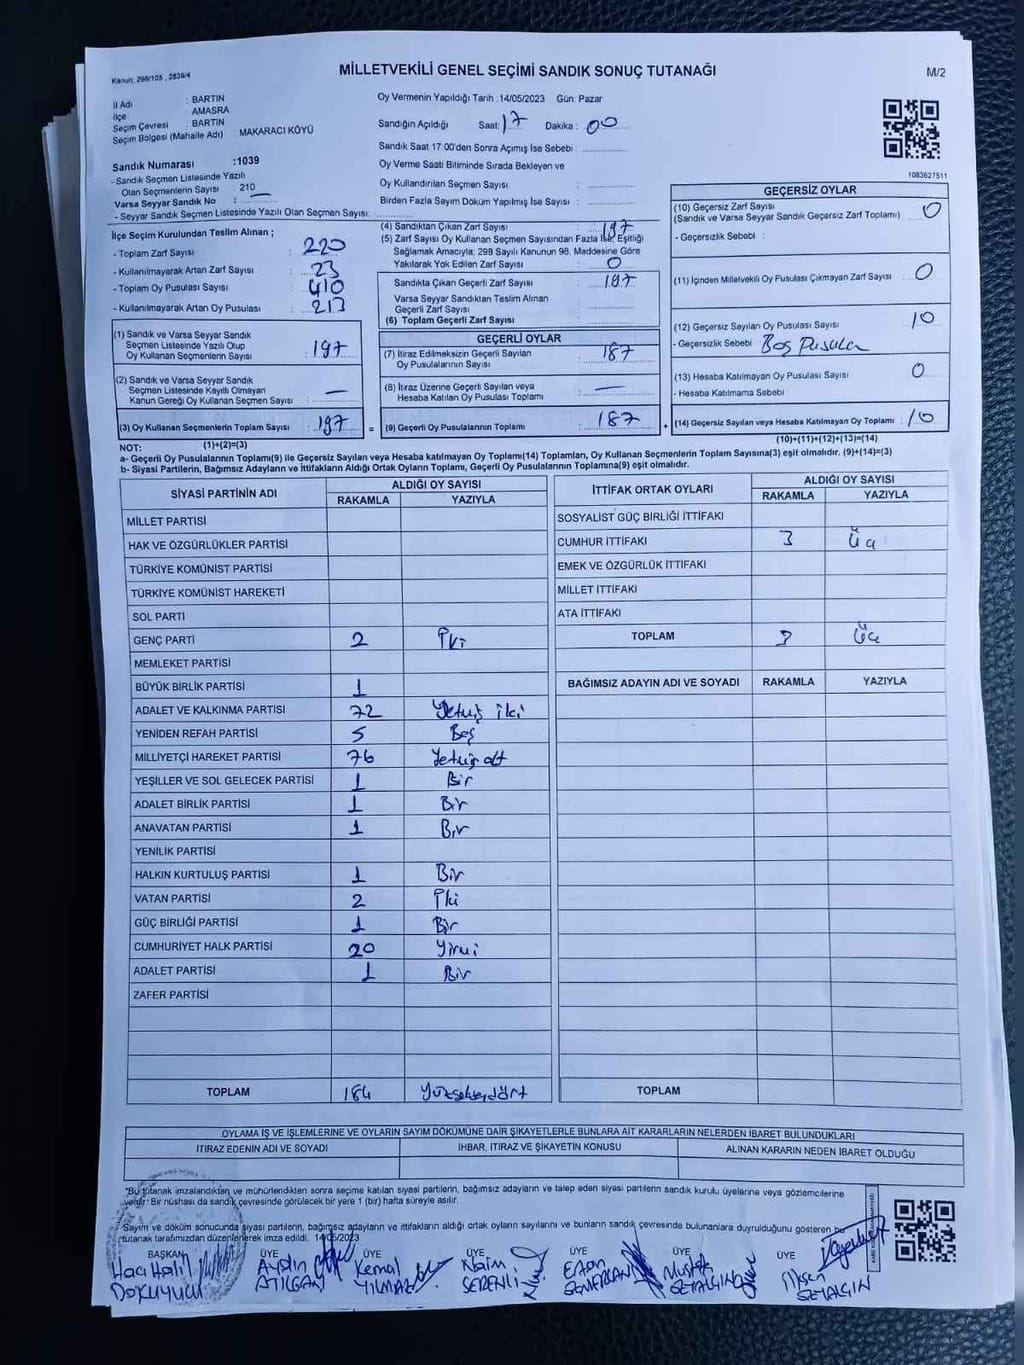 Kanun: 298/105, 2839/4
MİLLETVEKİLİ GENEL SEÇİMİ SANDIK SONUÇ TUTANAĞI
M/2
İl Adı : BARTIN
İlçe : AMASRA
Seçim Çevresi : BARTIN
Seçim Bölgesi (Mahalle Adı) : MAKARACI KÖYÜ
Sandık Numarası :1039
- Sandık Seçmen Listesinde Yazılı
Olan Seçmenlerin Sayısı : 210
Varsa Seyyar Sandık No :
- Seyyar Sandık Seçmen Listesinde Yazılı Olan Seçmen Sayısı:
Oy Vermenin Yapıldığı Tarih :14/05/2023 Gün: Pazar
Sandığın Açıldığı Saat: 17 Dakika : 00
Sandık Saat 17:00'den Sonra Açımış İse Sebebi :
Oy Verme Saati Bitiminde Sırada Bekleyen ve
Oy Kullandırılan Seçmen Sayısı :
Birden Fazla Sayım Döküm Yapılmış İse Sayısı :
1083627511
İlçe Seçim Kurulundan Teslim Alınan ;
- Toplam Zarf Sayısı : 220
- Kullanılmayarak Artan Zarf Sayısı : 23
- Toplam Oy Pusulası Sayısı : 410
- Kullanılmayarak Artan Oy Pusulası : 213
(1) Sandık ve Varsa Seyyar Sandık
Seçmen Listesinde Yazılı Olup
Oy Kullanan Seçmenlerin Sayısı : 197
(2) Sandık ve Varsa Seyyar Sandık
Seçmen Listesinde Kayıtlı Olmayan
Kanun Gereği Oy Kullanan Seçmen Sayısı : —
(3) Oy Kullanan Seçmenlerin Toplam Sayısı : 197
(4) Sandıktan Çıkan Zarf Sayısı : 197
(5) Zarf Sayısı Oy Kullanan Seçmen Sayısından Fazla İse, Eşitliği
Sağlamak Amacıyla, 298 Sayılı Kanunun 98. Maddesine Göre
Yakılarak Yok Edilen Zarf Sayısı : 0
Sandıkta Çıkan Geçerli Zarf Sayısı : 197
Varsa Seyyar Sandıktan Teslim Alınan
Geçerli Zarf Sayısı :
(6) Toplam Geçerli Zarf Sayısı :
GEÇERLİ OYLAR
(7) İtiraz Edilmeksizin Geçerli Sayılan
Oy Pusulalarının Sayısı : 187
(8) İtiraz Üzerine Geçerli Sayılan veya
Hesaba Katılan Oy Pusulası Toplamı : —
= (9) Geçerli Oy Pusulalarının Toplamı : 187
GEÇERSİZ OYLAR
(10) Geçersiz Zarf Sayısı
(Sandık ve Varsa Seyyar Sandık Geçersiz Zarf Toplamı) : 0
- Geçersizlik Sebebi :
(11) İçinden Milletvekili Oy Pusulası Çıkmayan Zarf Sayısı : 0
(12) Geçersiz Sayılan Oy Pusulası Sayısı : 10
- Geçersizlik Sebebi : Boş Pusula
(13) Hesaba Katılmayan Oy Pusulası Sayısı : 0
- Hesaba Katılmama Sebebi
+ (14) Geçersiz Sayılan veya Hesaba Katılmayan Oy Toplamı : 10
NOT: (1)+(2)=(3)
(10)+(11)+(12)+(13)=(14)
a- Geçerli Oy Pusulasının Toplamı(9) ile Geçersiz Sayılan veya Hesaba katılmayan Oy Toplamı(14) Toplamları, Oy Kullanan Seçmenlerin Toplam Sayısına(3) eşit olmalıdır. (9)+(14)=(3)
b- Siyasi Partilerin, Bağımsız Adayların ve İttifakların Aldığı Ortak Oyların Toplamı, Geçerli Oy Pusulalarının Toplamına(9) eşit olmalıdır.
SİYASİ PARTİNİN ADI ALDIĞI OY SAYISI
RAKAMLA YAZIYLA
MİLLET PARTİSİ
HAK VE ÖZGÜRLÜKLER PARTİSİ
TÜRKİYE KOMÜNİST PARTİSİ
TÜRKİYE KOMÜNİST HAREKETİ
SOL PARTİ
GENÇ PARTİ 2 İki
MEMLEKET PARTİSİ
BÜYÜK BİRLİK PARTİSİ 1
ADALET VE KALKINMA PARTİSİ 72 Yetmiş iki
YENİDEN REFAH PARTİSİ 5 Beş
MİLLİYETÇİ HAREKET PARTİSİ 76 Yetmiş altı
YEŞİLLER VE SOL GELECEK PARTİSİ 1 Bir
ADALET BİRLİK PARTİSİ 1 Bir
ANAVATAN PARTİSİ 1 Bir
YENİLİK PARTİSİ
HALKIN KURTULUŞ PARTİSİ 1 Bir
VATAN PARTİSİ 2 İki
GÜÇ BİRLİĞİ PARTİSİ 1 Bir
CUMHURİYET HALK PARTİSİ 20 Yirmi
ADALET PARTİSİ 1 Bir
ZAFER PARTİSİ
TOPLAM 184 Yüzseksendört
İTTİFAK ORTAK OYLARI ALDIĞI OY SAYISI
RAKAMLA YAZIYLA
SOSYALİST GÜÇ BİRLİĞİ İTTİFAKI
CUMHUR İTTİFAKI 3 Üç
EMEK VE ÖZGÜRLÜK İTTİFAKI
MİLLET İTTİFAKI
ATA İTTİFAKI
TOPLAM 3 Üç
BAĞIMSIZ ADAYIN ADI VE SOYADI RAKAMLA YAZIYLA
TOPLAM
OYLAMA İŞ VE İŞLEMLERİNE VE OYLARIN SAYIM DÖKÜMÜNE DAİR ŞİKAYETLERLE BUNLARA AİT KARARLARIN NELERDEN İBARET BULUNDUKLARI
İTİRAZ EDENİN ADI VE SOYADI İHBAR, İTİRAZ VE ŞİKAYETİN KONUSU ALINAN KARARIN NEDEN İBARET OLDUĞU
*Bu tutanak imzalandıktan ve mühürlendikten sonra seçime katılan siyasi partilerin, bağımsız adayların ve talep eden siyasi partilerin sandık kurulu üyelerine veya gözlemcilerine
verilir. Bir nüshası da sandık çevresinde görülecek bir yere 1 (bir) hafta süreyle asılır.
Sayım ve döküm sonucunda siyasi partilerin, bağımsız adayların ve ittifakların aldığı ortak oyların sayılarını ve bunların sandık çevresinde bulunanlara duyrulduğunu gösteren bu
tutanak tarafımızdan düzenlenerek imza edildi. 14/05/2023
BAŞKAN ÜYE ÜYE ÜYE ÜYE ÜYE ÜYE
Hacı Halil Aydın Kemal Naim Ertan Mustafa İlksen
Dokuyucu ATILGAN YILMAZ SERENLİ SETALÇIN SETALÇIN